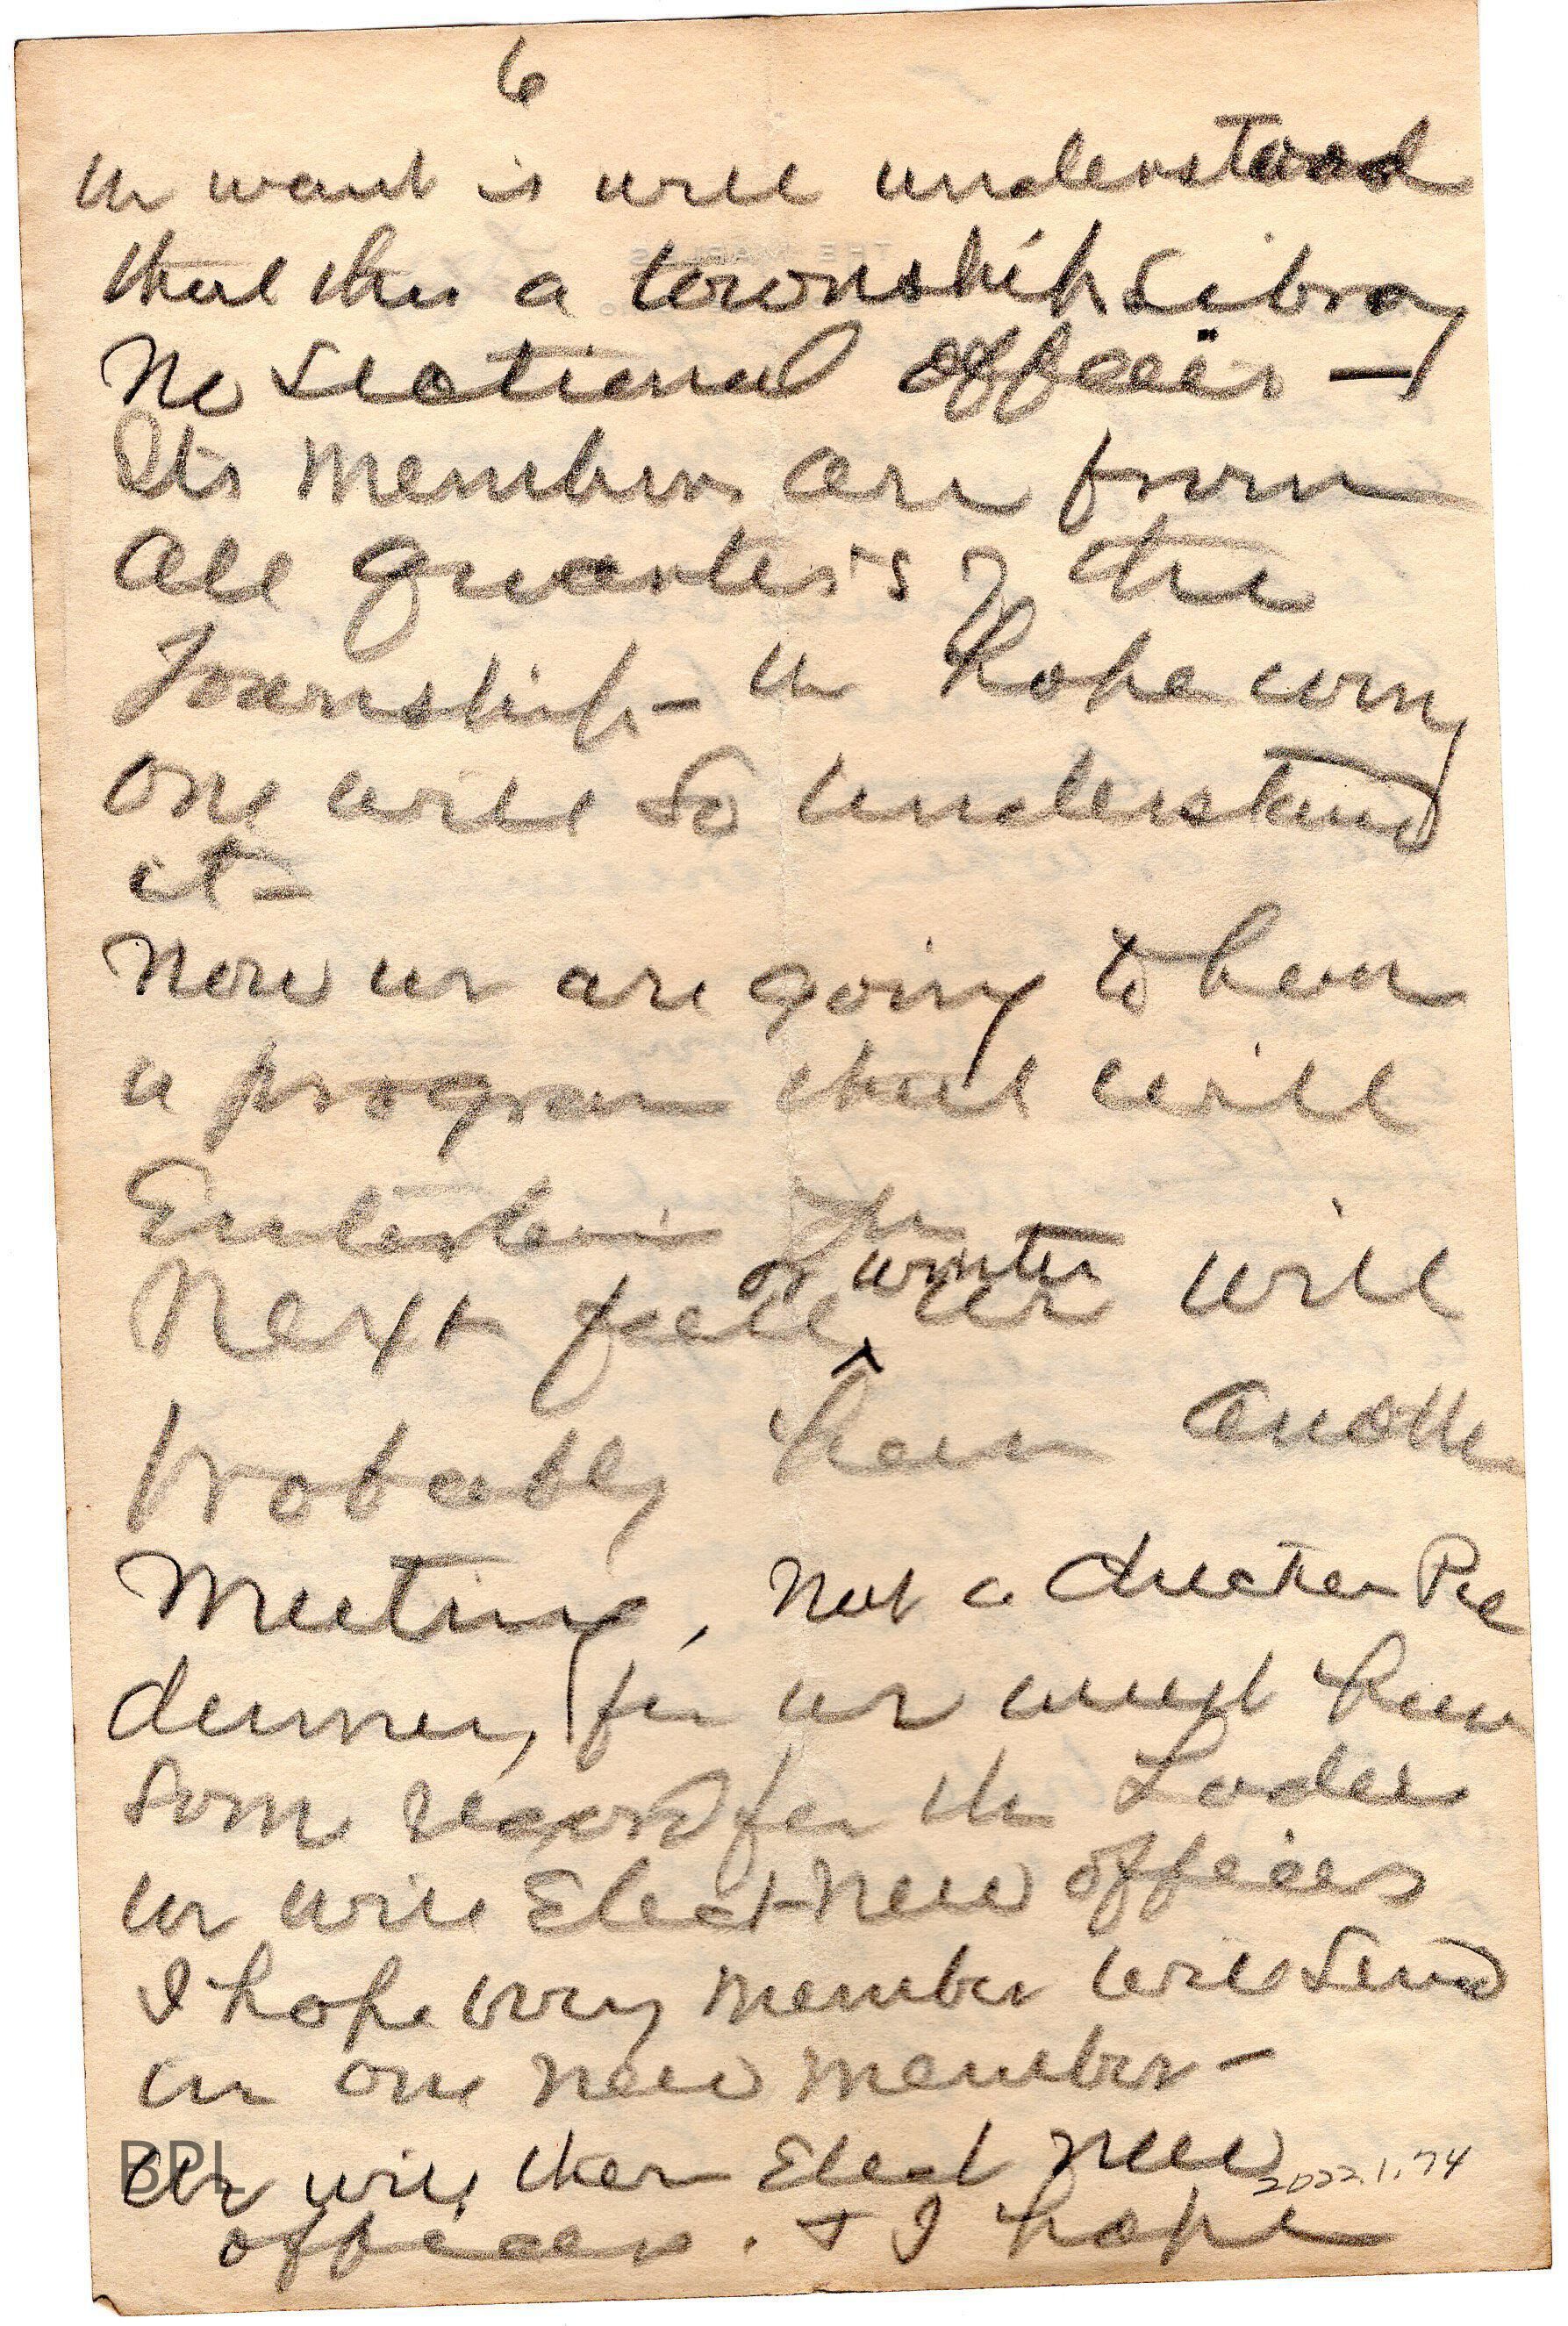 6
We want is well understood
that this a township Library
No Sectional affair —
Its members are from
all quarters of the
Township - We hope every
one will so understand
it -
Now we are going to have
a program that will
Entertain you
or winter
Next fall ^ we will
probably have another
Meeting, Not a chicken Pie
dinner, for we must have
some regard for the Ladies
we will Elect new officers
I hope every member will Send
in one new member -
We will then Elect new
officers. + I hope
BPL
2022.1.74